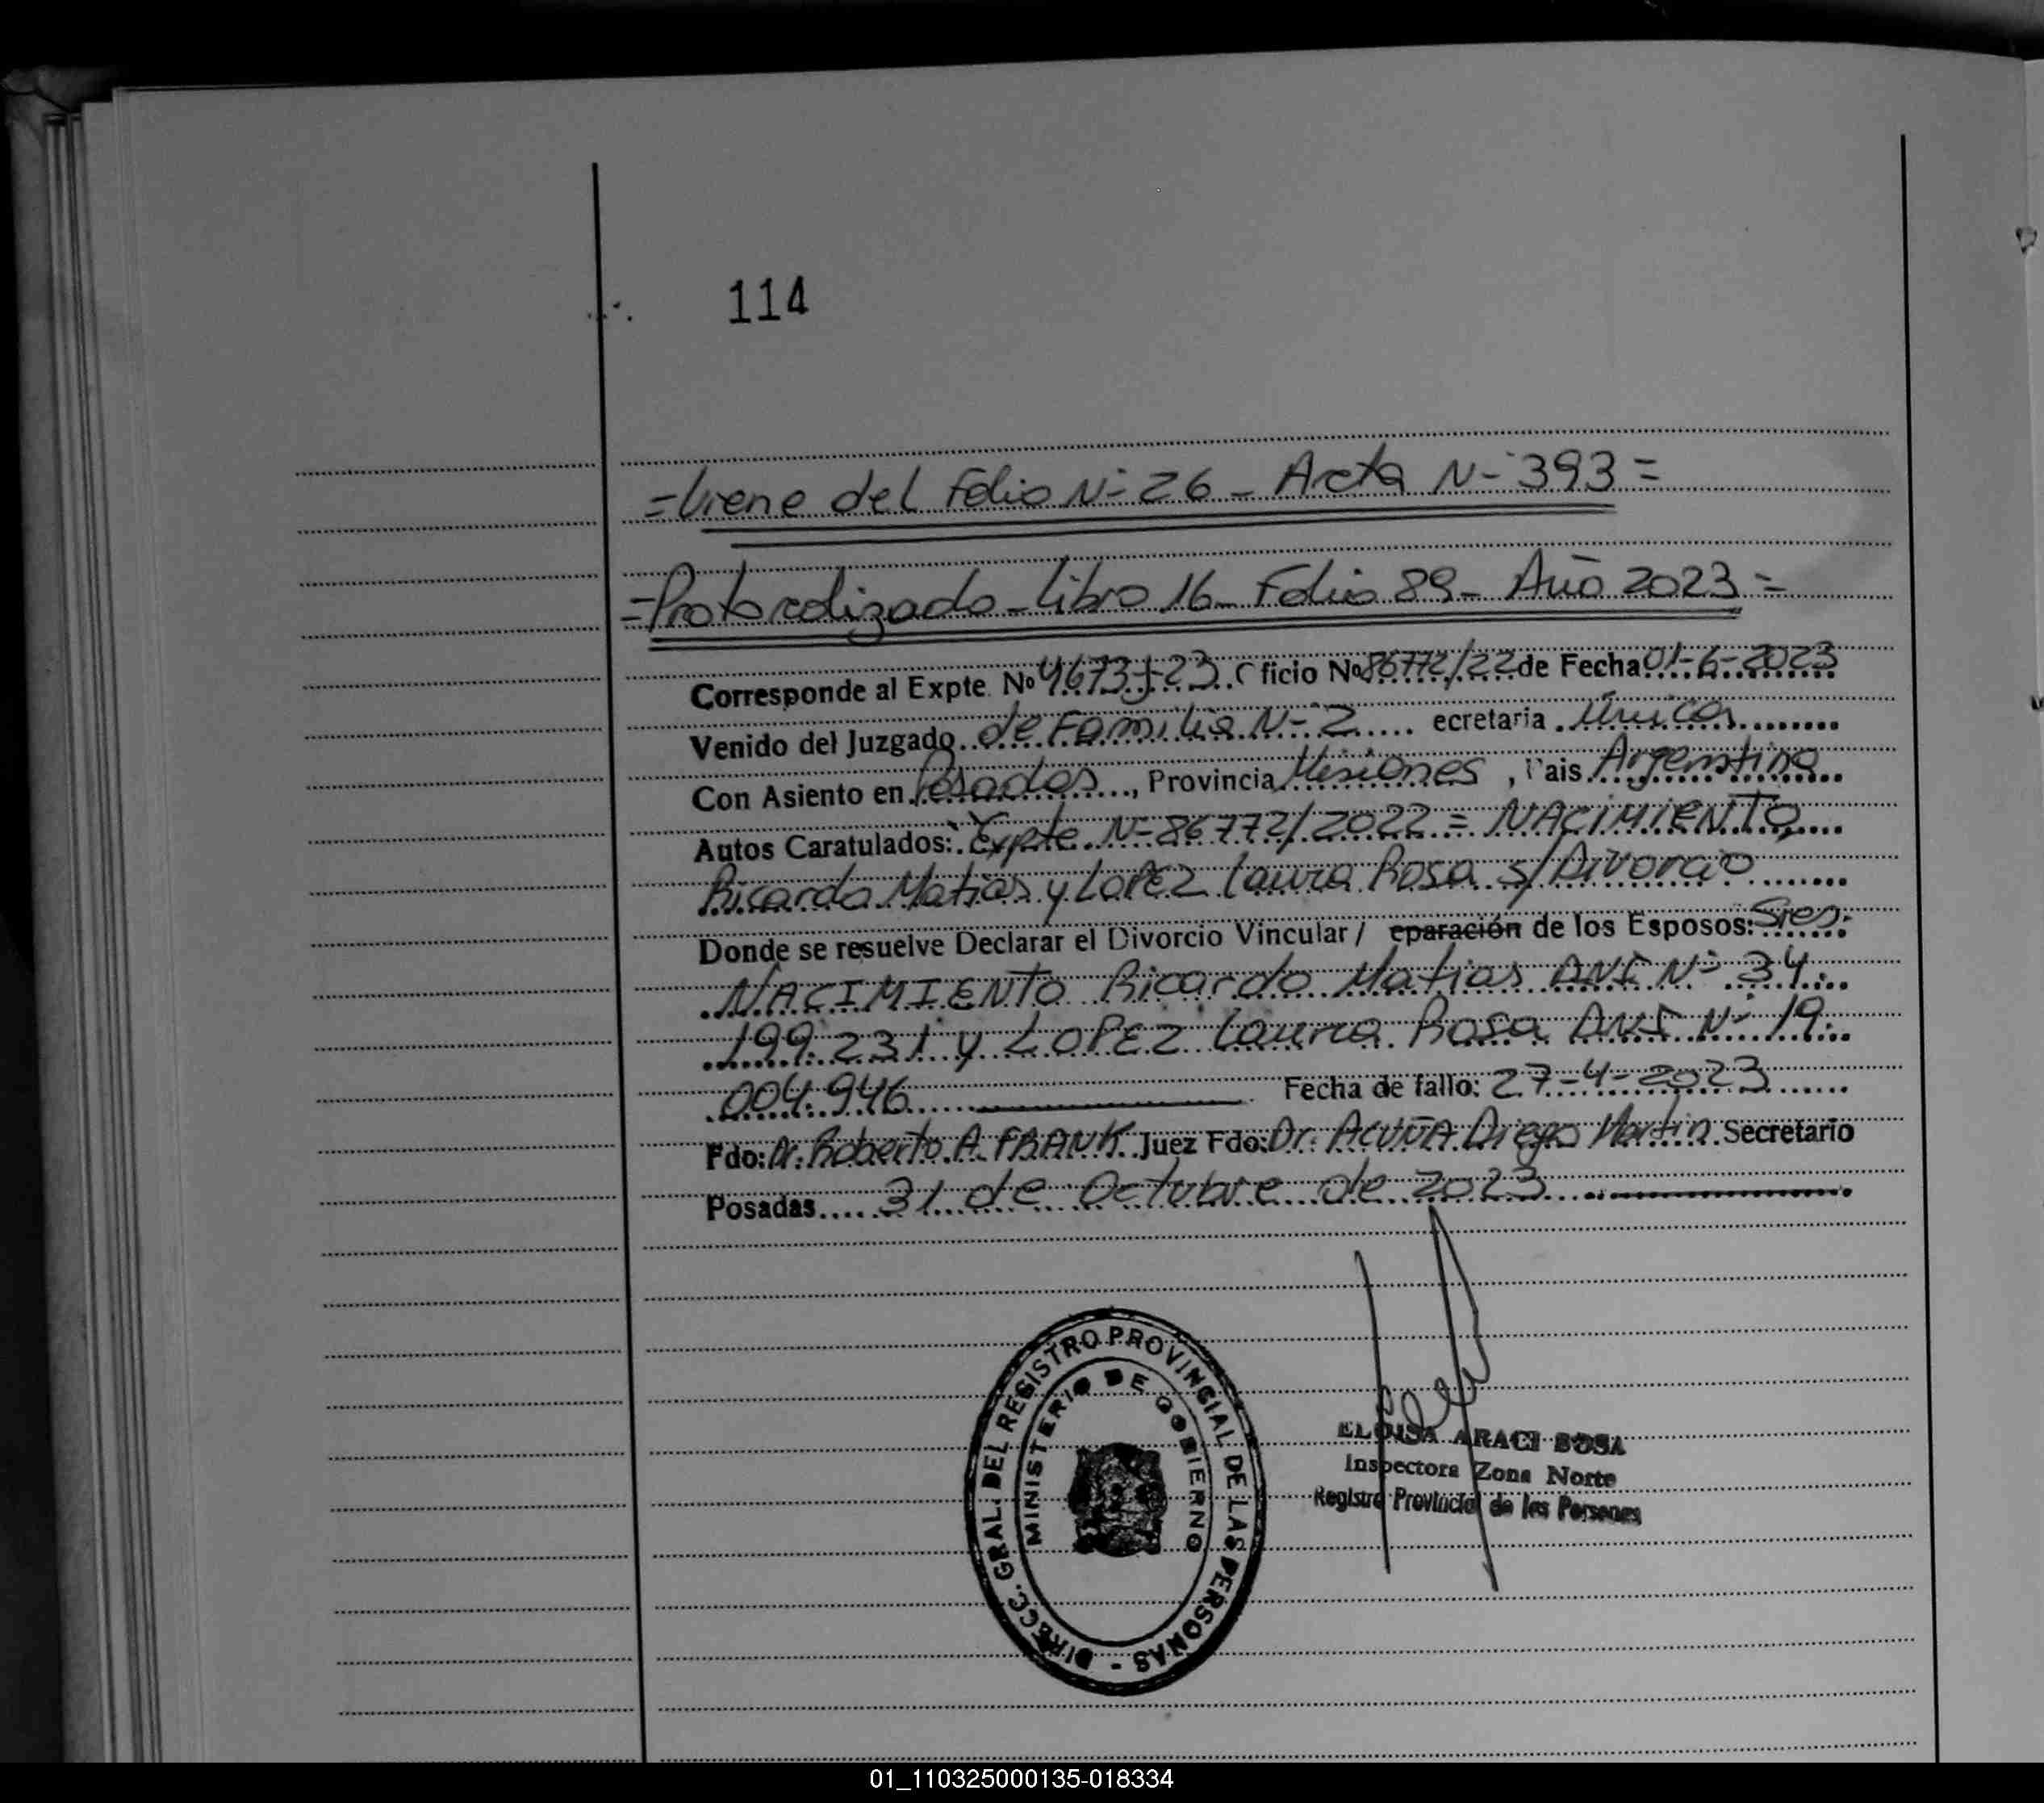 114
=Viene del Folio N° 26 - Acta N° 393=
=Protocolizado - Libro 16 - Folio 89 - Año 2023=
Corresponde al Expte. Nº 4673-J-23. Oficio Nº 86772/22 de Fecha 01-6-2023
Venido del Juzgado de Familia N° 2 ecretaria Única
Con Asiento en Posadas, Provincia Misiones, Pais Argentina
Autos Caratulados: Expte N° 86772/2022 = NACIMIENTO,
Ricardo Matias y LOPEZ Laura Rosa s/Divorcio
Donde se resuelve Declarar el Divorcio Vincular / eparación de los Esposos: Sres.
NACIMIENTO Ricardo Matias DNI N° 34.
199.231 y LOPEZ Laura Rosa DNI N° 19.
004.946 Fecha de fallo: 27-4-2023
Fdo: Dr. Roberto A. FRANK Juez Fdo: Dr. ACUÑA Diego Martin Secretario
Posadas 31 de Octubre de 2023
DIRECC. GRAL. DEL REGISTRO PROVINCIAL DE LAS PERSONAS -
MINISTERIO DE GOBIERNO
ELOISA ARACI SOSA
Inspectora Zona Norte
Registro Provincial de las Personas
01_110325000135-018334